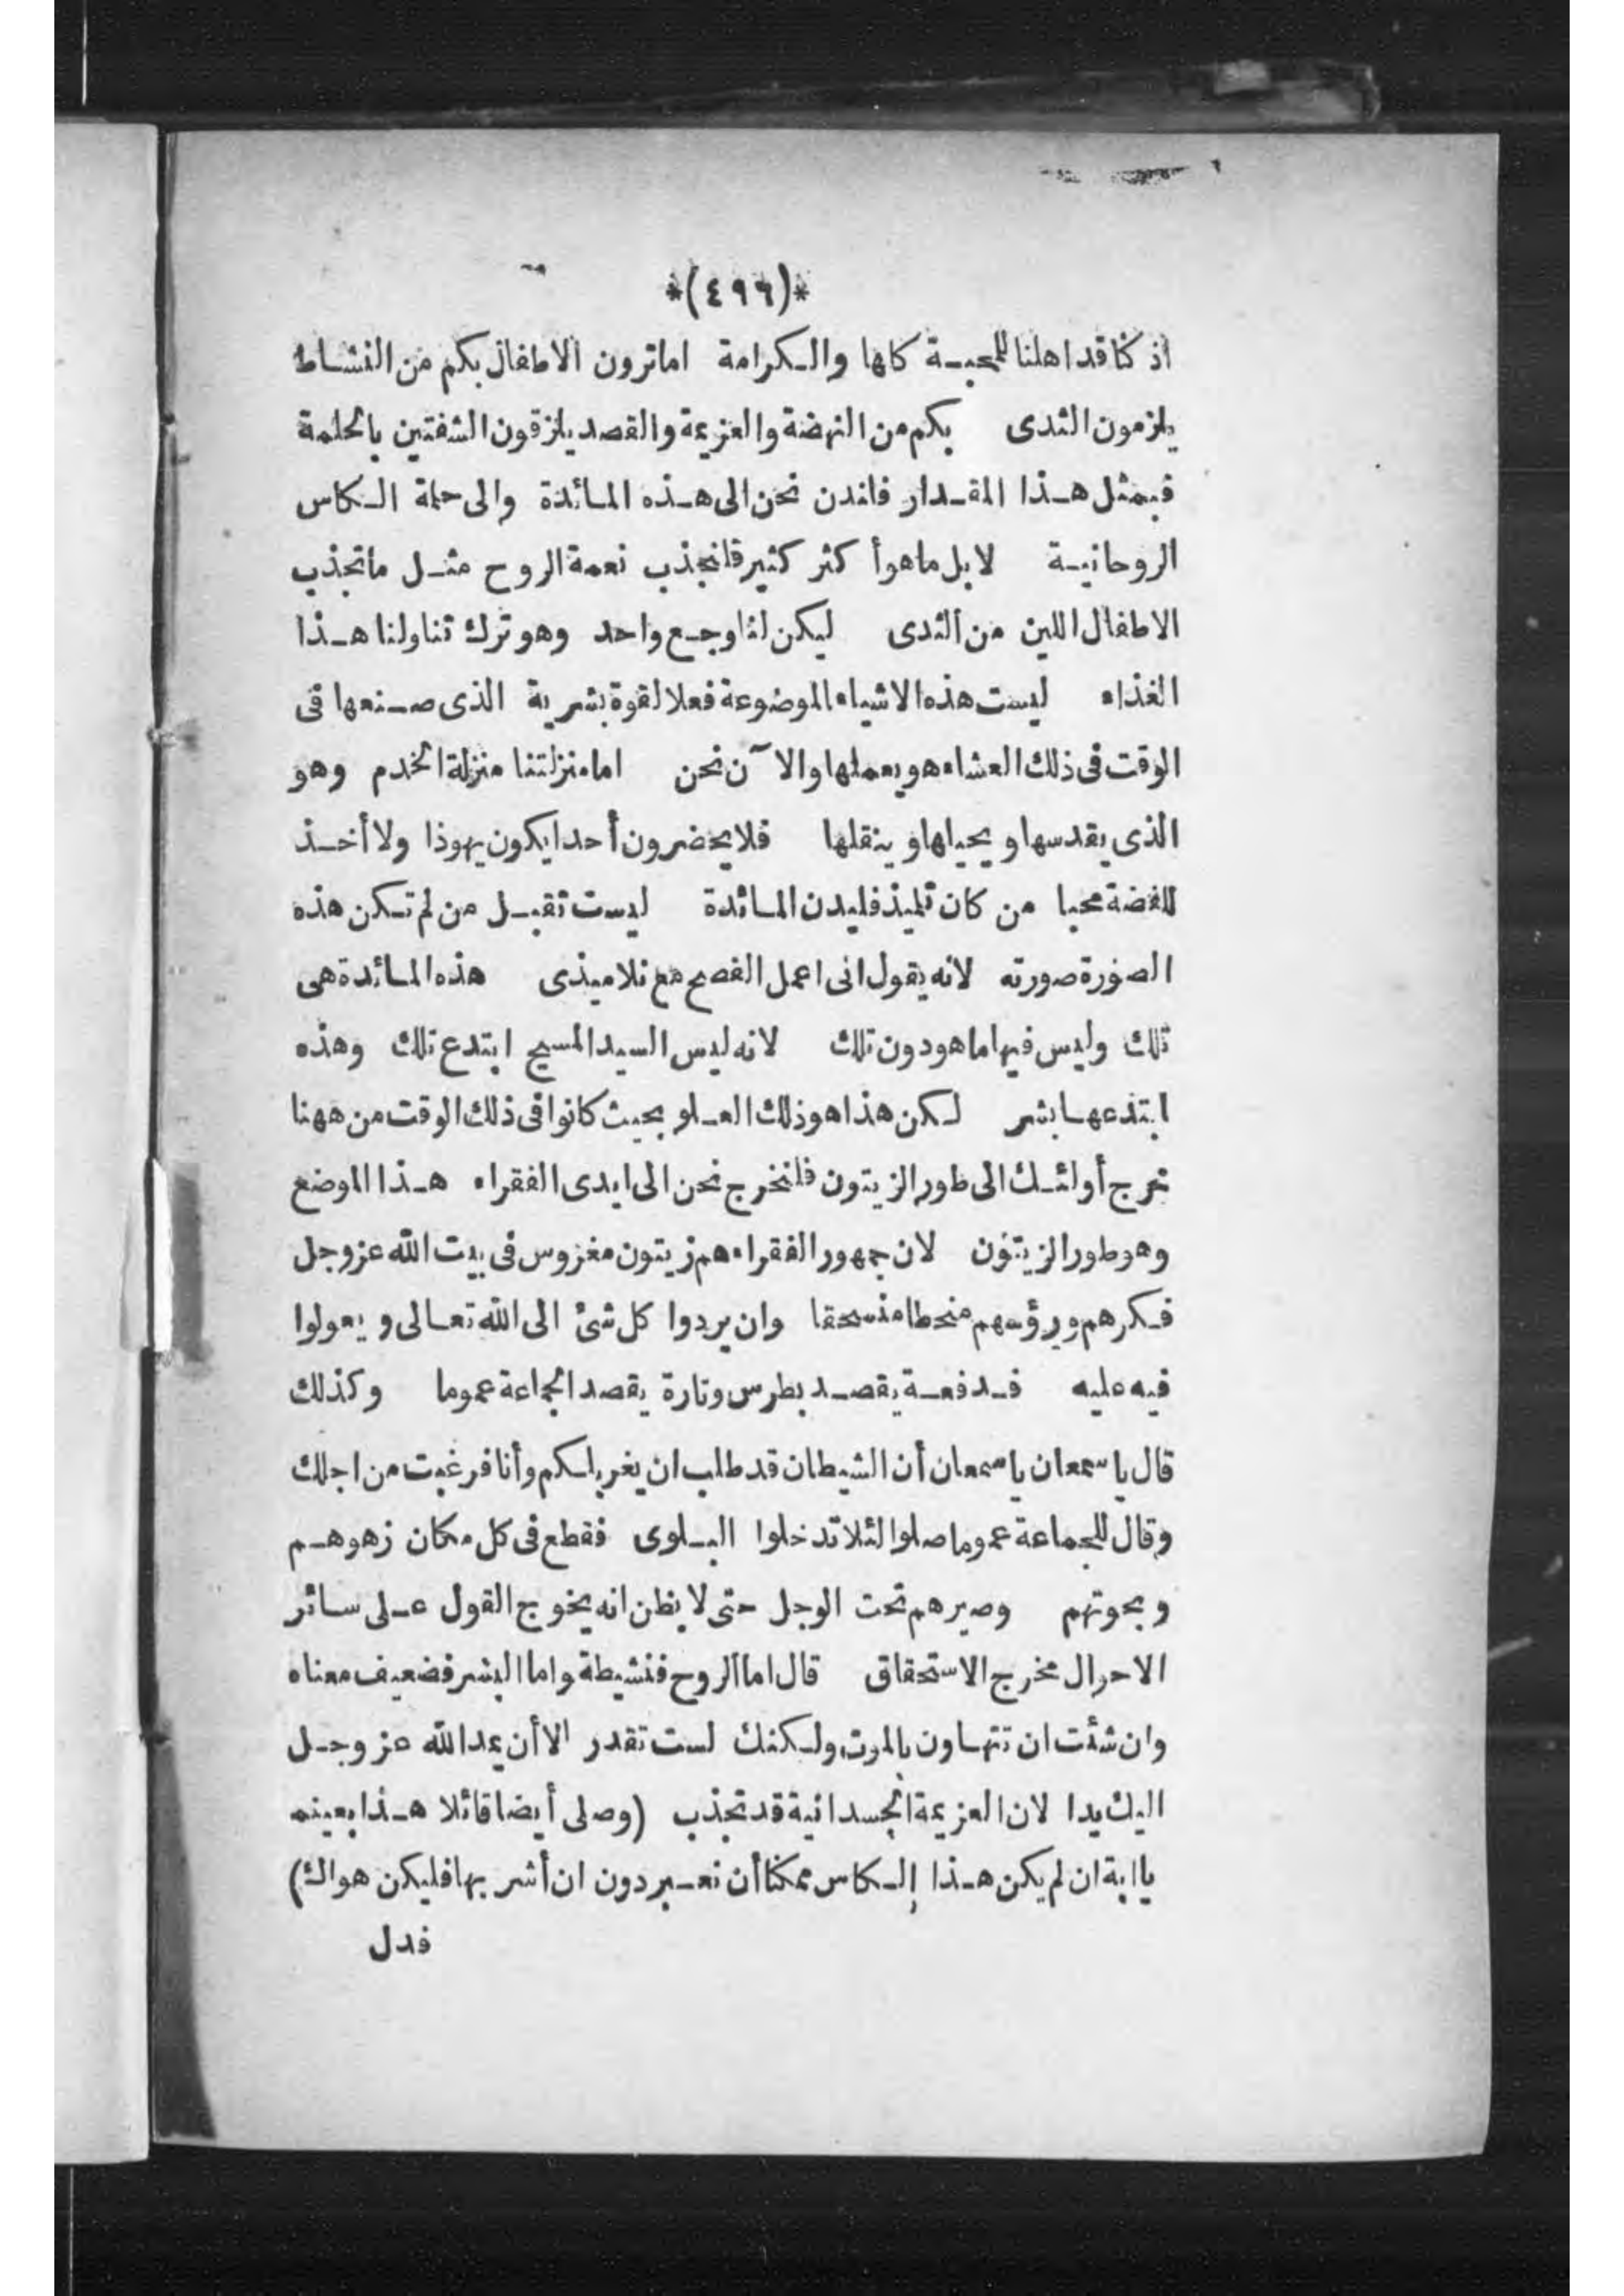 *(٤٩٦)*
اذ كنا قد اهلنا للمحبة كلها والكرامة اما ترون الاطفال بكم من النشاط
يلزمون الثدى بكم من النهضة والعزيمة والقصد يلزقون الشفتين بالحلمة
فبمثل هذا المقدار فلندن نحن الى هذه المائدة والى حلمة الكاس
الروحانية لا بل ما هو أكثر كثير فلنجذب نعمة الروح مثل ما تجذب
الاطفال اللبن من الثدى ليكن لنا وجع واحد وهو ترك تناولنا هذا
الغذاء ليست هذه الاشياء الموضوعة فعلا لقوة بشرية الذى صنعها فى
الوقت فى ذلك العشاء هو يعملها والآن نحن اما منزلتنا منزلة الخدم وهو
الذى يقدسها ويحيلها وينقلها فلا يحضرون أحد ايكون يهوذا ولا أخذ
للفضة محبا من كان تلميذ فليدن المائدة ليست تقبل من لم تكن هذه
الصورة صورته لانه يقول انى اعمل الفصح مع تلاميذى هذه المائدة هى
تلك وليس فيها ما هو دون تلك لانه ليس السيد المسيح ابتدع تلك وهذه
ابتدعها بشر لكن هذا هو ذلك العلو بحيث كانوا فى ذلك الوقت من ههنا
خرج أولئك الى طور الزيتون فلنخرج نحن الى ايدى الفقراء هذا الموضع
وهو طور الزيتون لان جمهور الفقراء هم زيتون مغروس فى بيت الله عز وجل
فكرهم ورؤسهم منحطا منسحقا وان يردوا كل شئ الى الله تعالى ويعولوا
فيه عليه فدفعة يقصد بطرس وتارة يقصد الجماعة عموما وكذلك
قال يا سمعان يا سمعان أن الشيطان قد طلب ان يغربلكم وأنا فرغبت من اجلك
وقال للجماعة عموما صلوا لئلا تدخلوا البلوى فقطع فى كل مكان زهوهم
وبحوتهم وصيرهم تحت الوجل حتى لا يظن انه يخوج القول على سائر
الاحرال مخرج الاستحقاق قال اما الروح فنشيطة واما البشر فضعيف معناه
وان شئت ان تتهاون بالموت ولكنك لست تقدر الا أن يمد الله عز وجل
اليك يدا لان العزيمة الجسدانية قد تجذب (وصلى أيضا قائلا هذا بعينه
يا ابة ان لم يكن هذا الكاس ممكنا أن تعبر دون ان أشربها فليكن هواك)
فدل